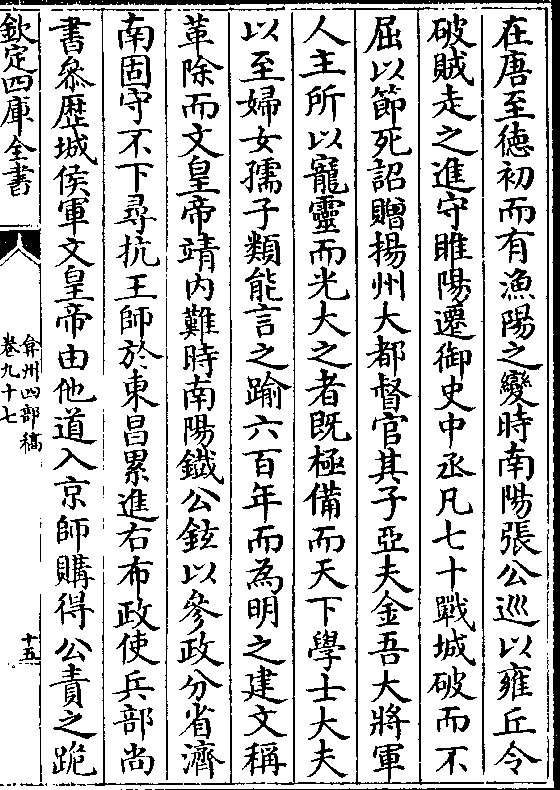 在唐至德初而有漁陽之變時南陽張公巡以雍丘令
破賊走之進守睢陽遷御史中丞凡七十戰城破而不
屈以節死詔贈揚州大都督官其子亞夫金吾大將軍
人主所以寵靈而光大之者既極備而天下學士大夫
以至婦女孺子類能言之踰六百年而為明之建文稱
革除而文皇帝靖内難時南陽鐵公鉉以參政分省濟
南固守不下尋抗王師於東昌累進右布政使兵部尚
書叅歴城侯軍文皇帝由他道入京師購得公責之跪
欽定四庫全書
弇州四部稿
卷九十七
十五